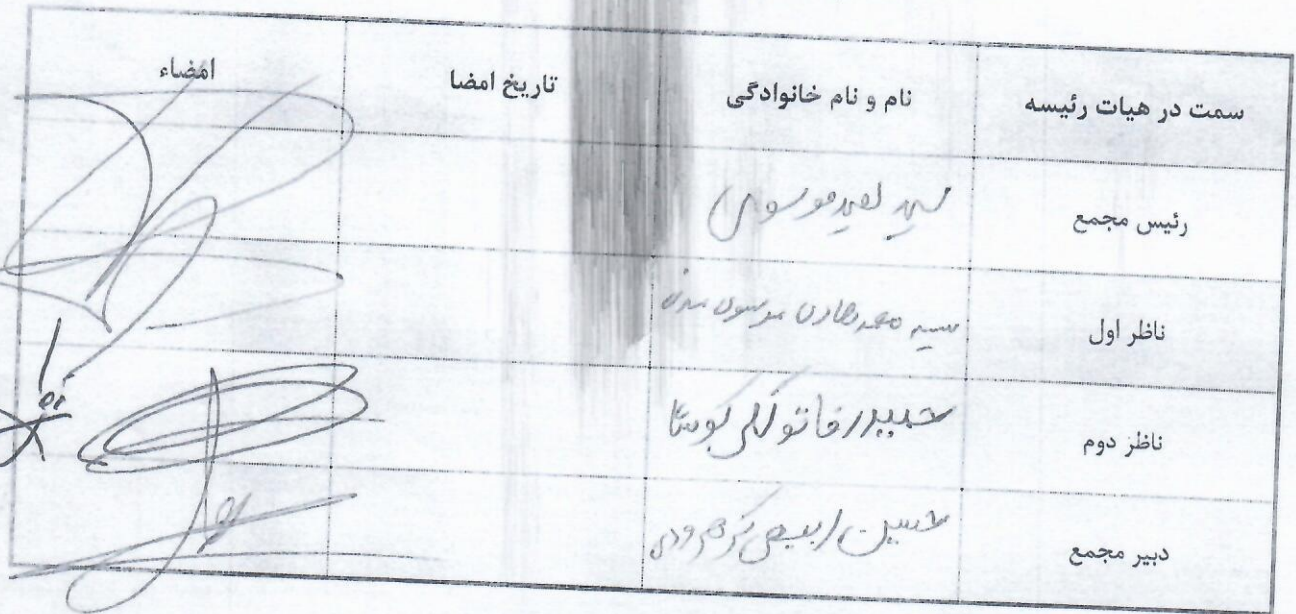 سمت در هیات رئیسه نام و نام خانوادگی تاریخ امضا امضاء
رئیس مجمع سید موسوی
ناظر اول سید محمدهادی موسوی
ناظر دوم حمیدرضا توکلی
دبیر مجمع حسین ربیعی کرهرودی